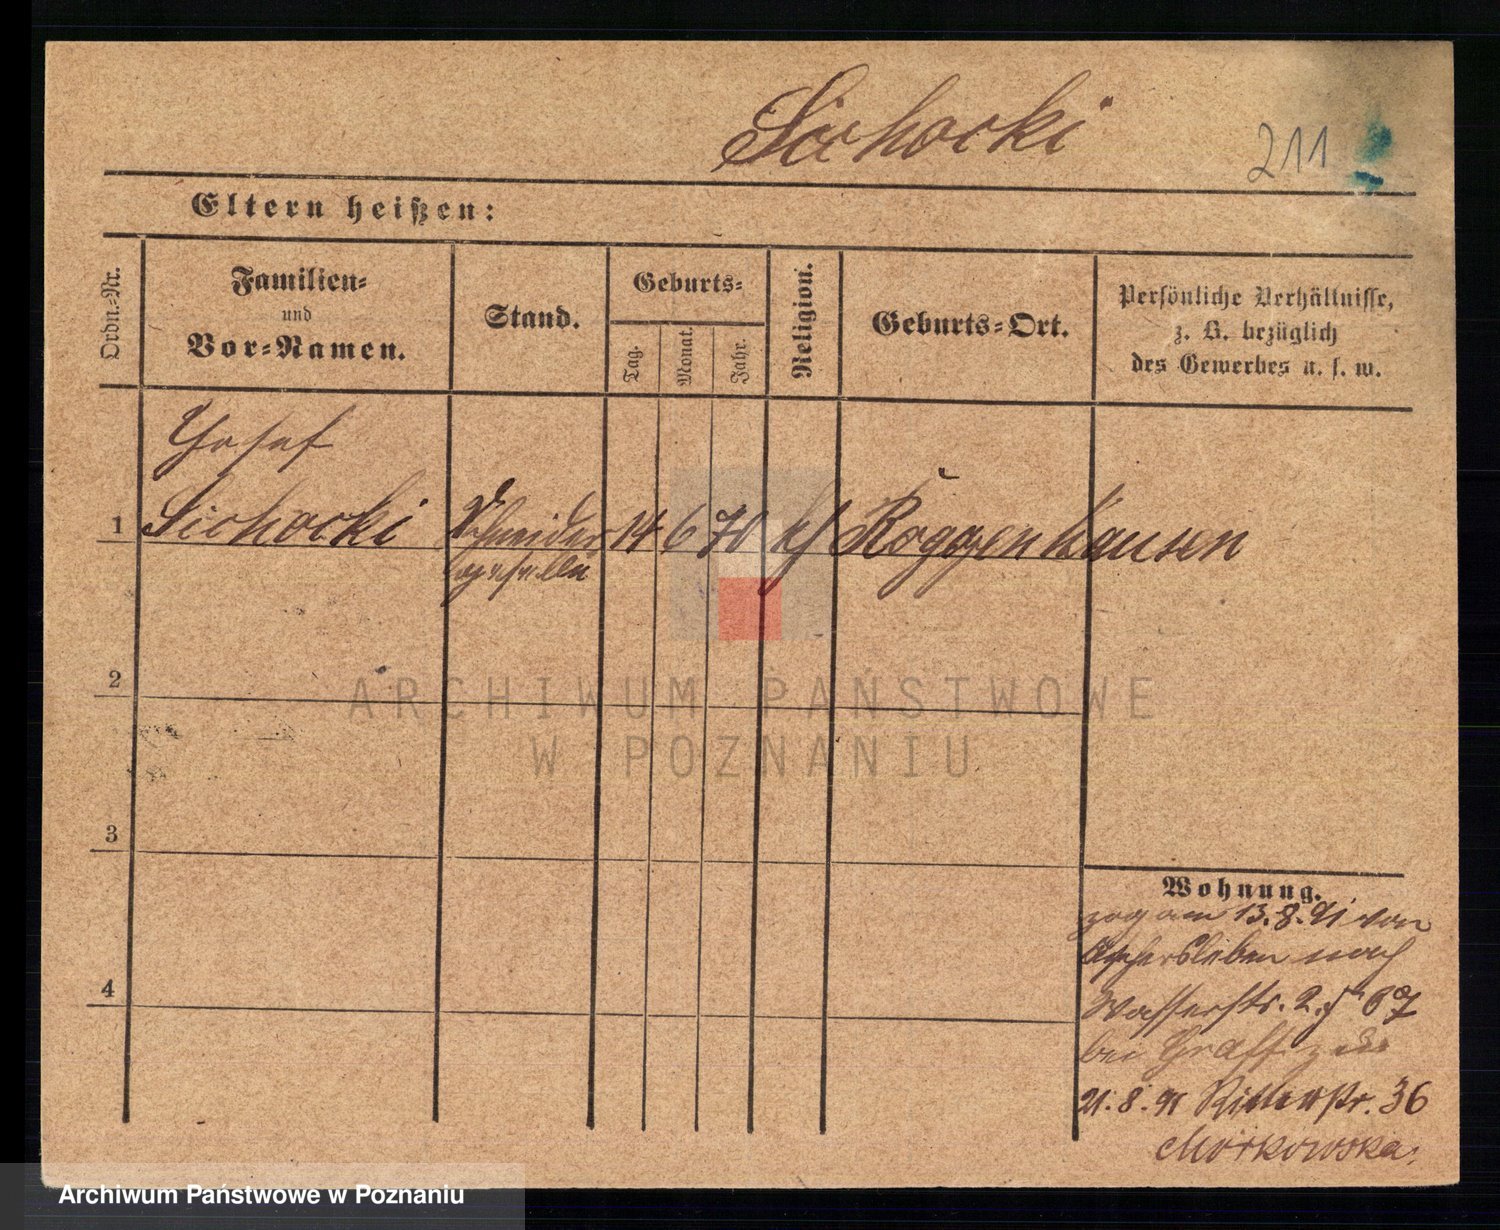 Sichocki
211
Eltern heißen:
Ordn.-Nr.
Familien-
und
Vor-Namen.
Stand.
Geburts-
Tag.
Monat.
Jahr.
Religion.
Geburts-Ort.
Persönliche Verhältnisse,
z. B. bezüglich
des Gewerbes u. s. w.
Josef
1 Sichocki Schneider 14 6 70 kf Roggenhausen
geselle
2
3
4
ARCHIWUM PAŃSTWOWE
W POZNANIU
Wohnung.
zog am 13.8.91 von
Aschersleben nach
Wasserstr. 2.
bei
21.8.91 Ritterstr. 36
Morkowska.
Archiwum Państwowe w Poznaniu